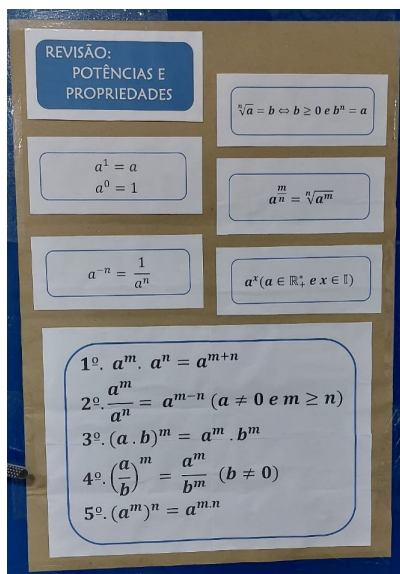 REVISÃO:
POTÊNCIAS E
PROPRIEDADES
ⁿ√a = b ⇔ b ≥ 0 e bⁿ = a
a¹ = a
a⁰ = 1
a^(m/n) = ⁿ√(aᵐ)
a⁻ⁿ = 1/aⁿ
aˣ(a ∈ ℝ₊* e x ∈ 𝕀)
1º. aᵐ. aⁿ = aᵐ⁺ⁿ
2º. aᵐ/aⁿ = aᵐ⁻ⁿ (a ≠ 0 e m ≥ n)
3º. (a . b)ᵐ = aᵐ . bᵐ
4º. (a/b)ᵐ = aᵐ/bᵐ (b ≠ 0)
5º. (aᵐ)ⁿ = a^(m.n)